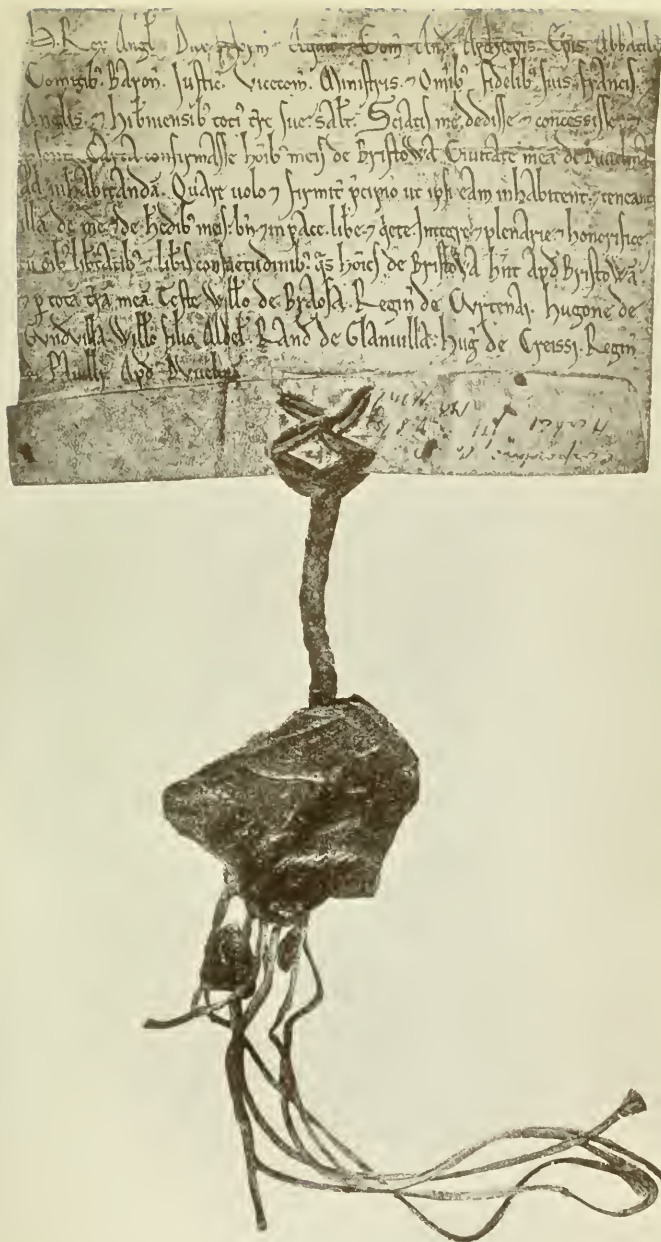 H. Rex Angl. Dux Norm. ⁊ Aqit. ⁊ Com. And. Archiep̄is. Ep̄is. Abbatib;
Comitib;. Baron. Justic. Vicecom. Ministris. ⁊ Omib; fidelib; suis francis. ⁊
Anglis. ⁊ hib̄niensib; toci᷒ t̄re sue. Sal̄t. Sciatis me dedisse ⁊ concessisse ⁊
p̄senti Carta confirmasse hōib; meis de Bristowa Ciuitatē meā de Duuelina
ad inhabitandā. Quare uolo ⁊ firmit̄ p̄cipio ut ipsi eam inhabitent. ⁊ teneant
illā de me ⁊ de h̄edib; meis. bn̄ ⁊ in pace. lib̄e ⁊ q̄ete. Integre ⁊ plenarie ⁊ honorifice.
cū om̄ib; lib̄tatib;. ⁊ lib̄is consuetudinib;. q̄s hōies de Bristowa hn̄t apd̄ Bristowā
⁊ p̄ totā t̄rā meā. Teste Will̄o de Braosa. Regin̄ de Curtenai. Hugone de
Gundeuilla. Will̄o filio Aldel̄. Rand̄ de Glanuilla. Huḡ de Creissi. Regin̄
de Apd̄ Duuelin̄